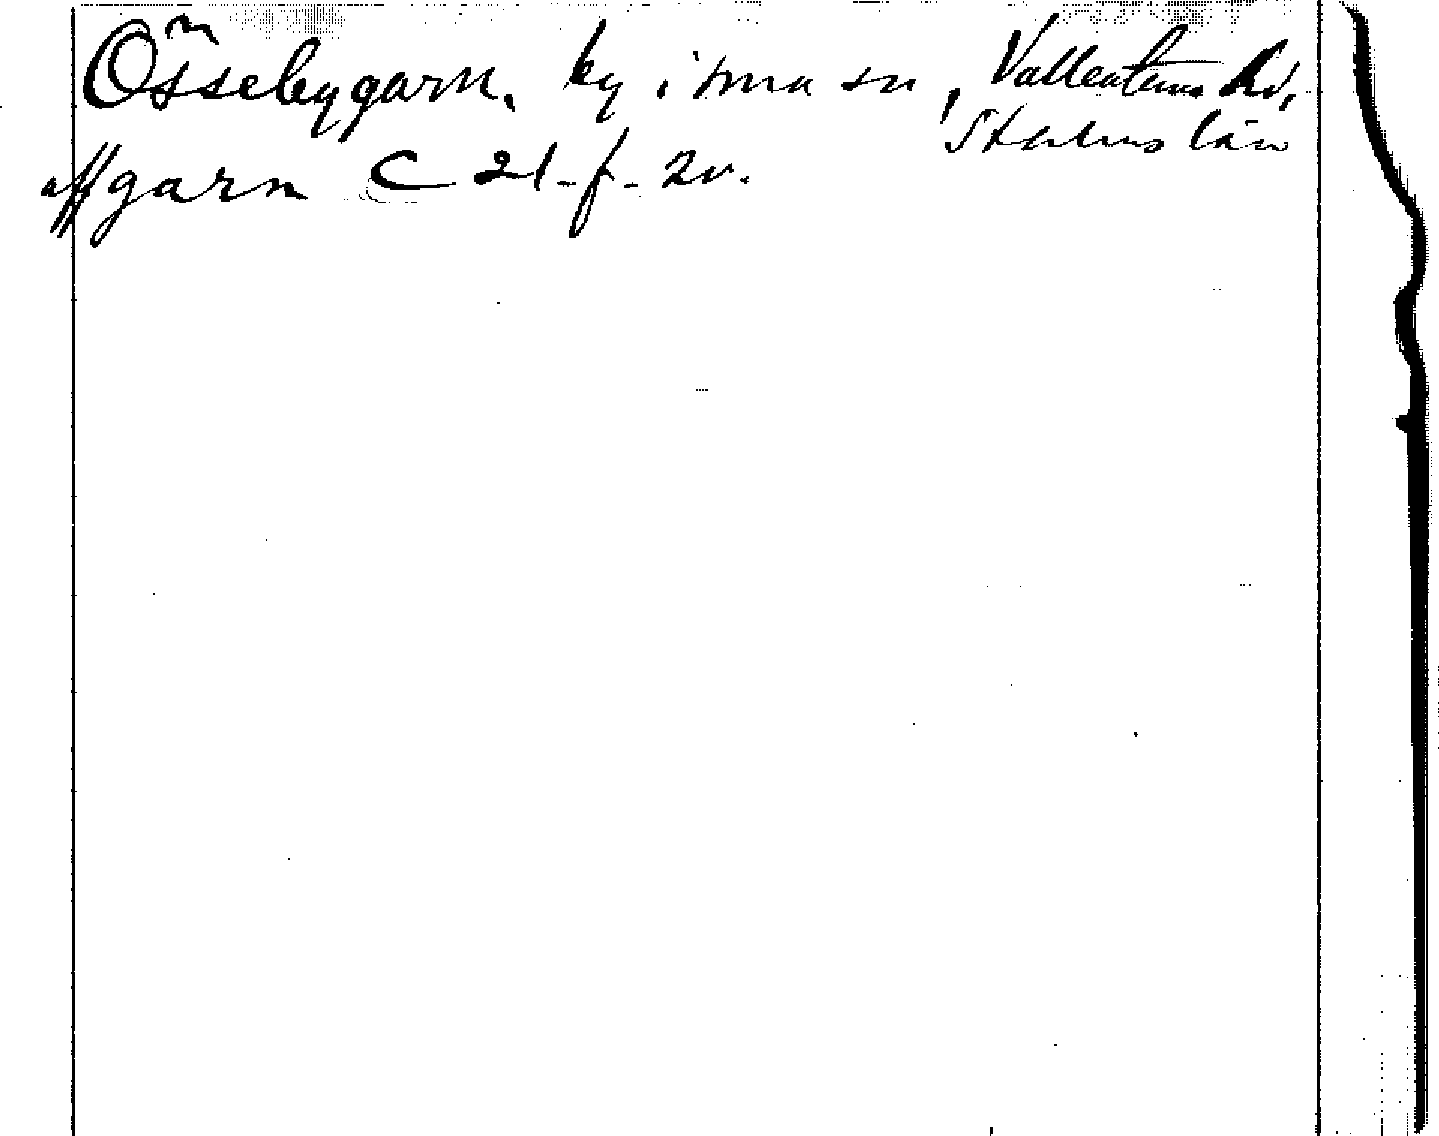 Össebygarn, by i sma sn, Vallentuna hd,
Sthlms län
aff garn C 21 f. 2v.